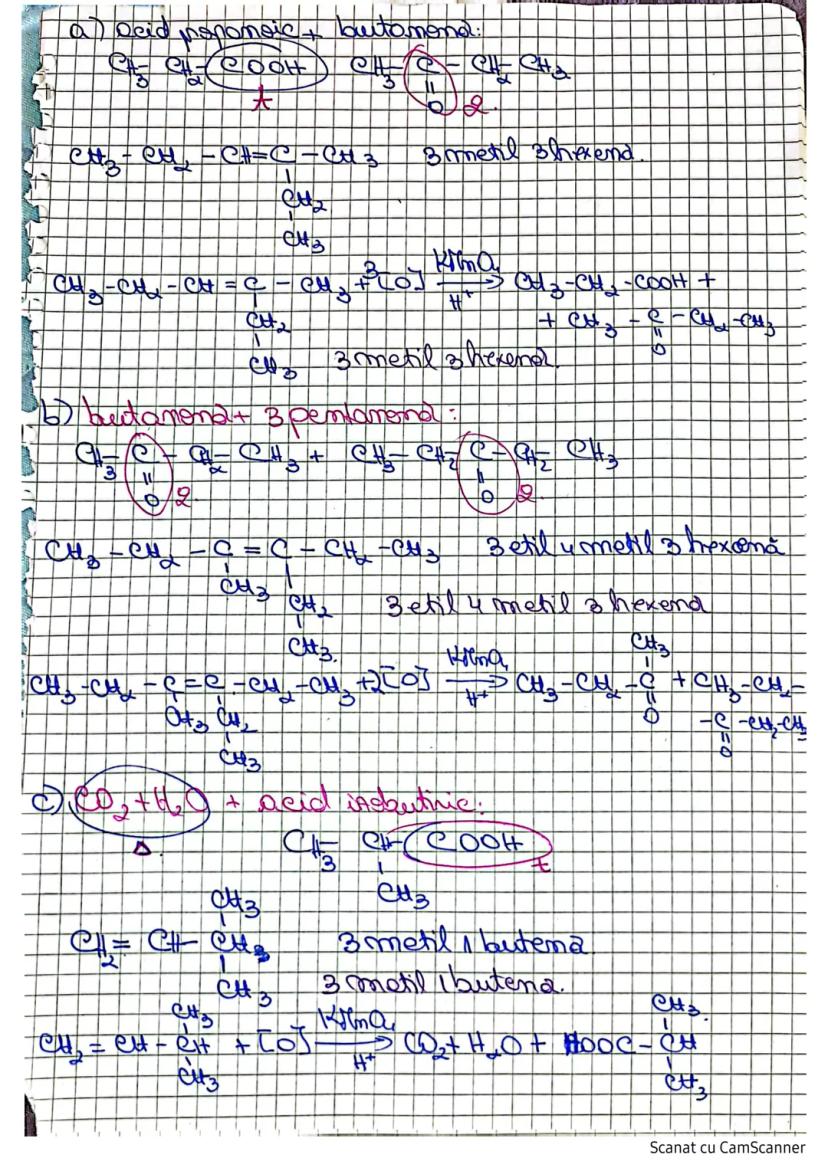 a) acid propanoic + butanona:
CH3 CH2 COOH CH3 - C - CH2 CH3
t || O 2.
CH3 - CH2 - CH = C - CH3 3 metil 3 hexena.
|
CH2
|
CH3
CH3 - CH2 - CH = C - CH3 + 3[O] KMnO4 / H+ → CH3 - CH2 - COOH +
| CH2 + CH3 - C - CH2 - CH3
| CH3 3 metil 3 hexena. || O
b) butanona + 3 pentanona:
CH3 - C - CH2 - CH3 + CH3 - CH2 C - CH2 CH3
|| O 2. || O 2
CH3 - CH2 - C = C - CH2 - CH3 3 etil 4 metil 3 hexenă
CH3 |
CH2 3 etil 4 metil 3 hexena
|
CH3.
CH3
CH3 - CH2 - C = C - CH2 - CH3 + 2[O] KMnO4 / H+ → CH3 - CH2 - C + CH3 - CH2 -
CH3 CH2 || O - C - CH2 - CH3
| CH3 || O
c) CO2 + H2O + acid izobutiric:
Δ. CH3 CH - COOH t
| CH3
CH3
|
CH2 = CH - CH3 3 metil 1 butena.
|
CH3 3 metil 1 butena.
CH3 CH3.
CH2 = CH - CH + [O] KMnO4 / H+ → CO2 + H2O + HOOC - CH
CH3 CH3
Scanat cu CamScanner